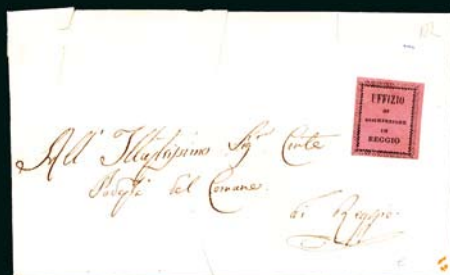 UFFIZIO
DI
DISTRIBUZIONE
IN
REGGIO
All' Illustrissimo Sig.r Conte
Podestà del Comune
di Reggio